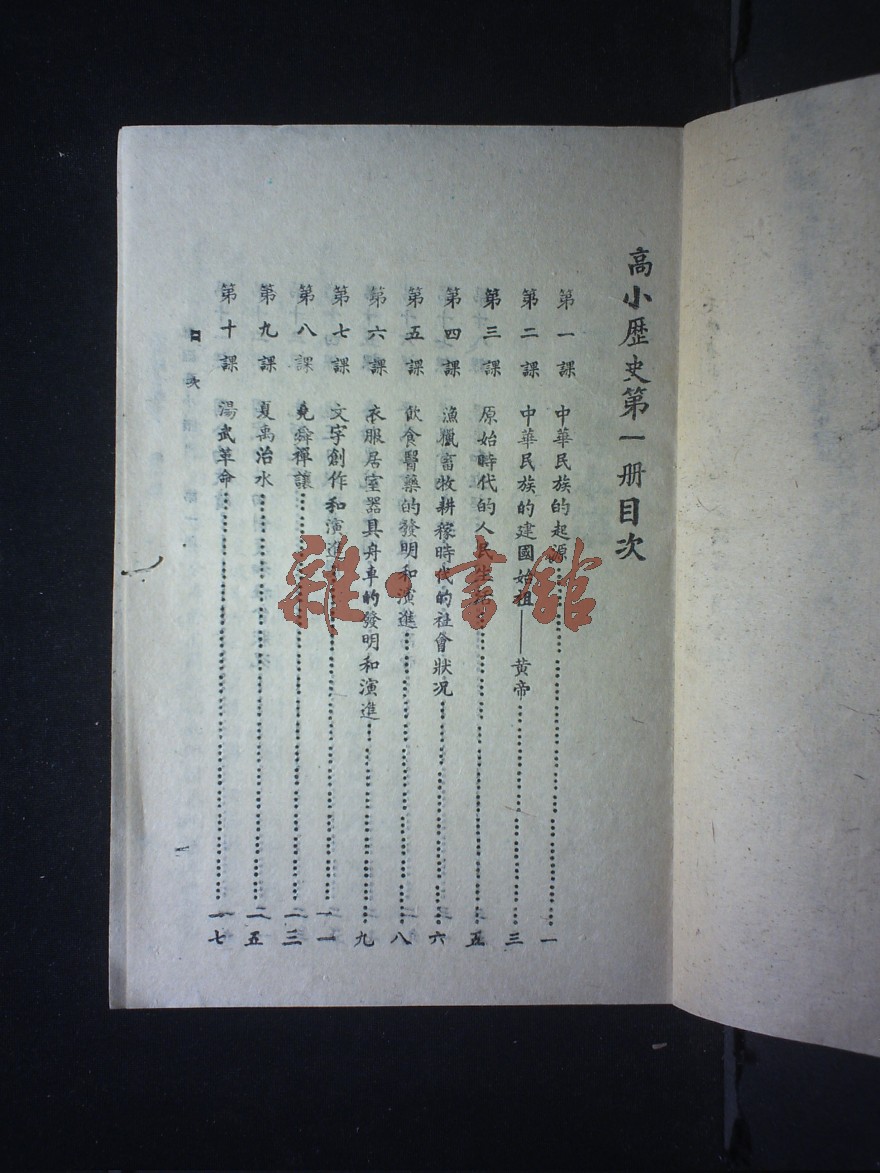 高小歷史第一册目次
第一課 中華民族的起源……一
第二課 中華民族的建國始祖——黃帝……三
第三課 原始時代的人民生活……五
第四課 漁獵畜牧耕稼時代的社會狀况……六
第五課 飲食醫藥的發明和演進……八
第六課 衣服居室器具舟車的發明和演進……九
第七課 文字創作和演進……一一
第八課 堯舜禪讓……一三
第九課 夏禹治水……一五
第十課 湯武革命……一七
目次
一
雜·書館